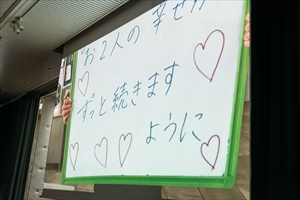 お2人の幸せが
ずっと続きます
ように